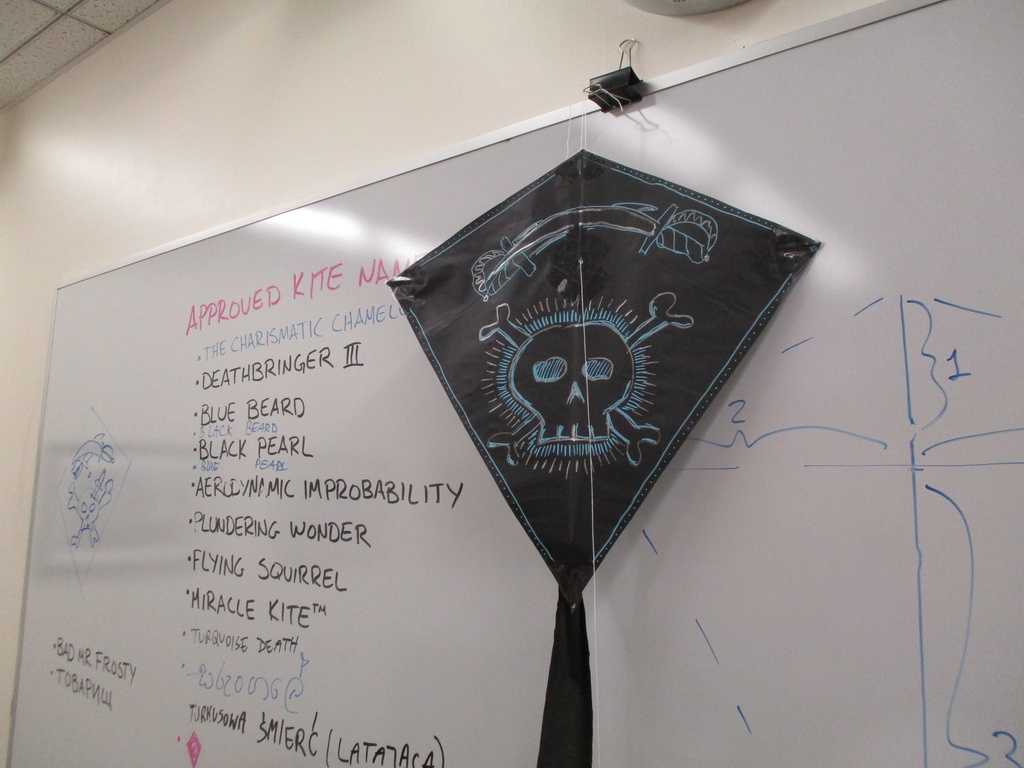 APPROVED KITE NAM
• THE CHARISMATIC CHAMELO
• DEATHBRINGER III
• BLUE BEARD
• BLACK BEARD
• BLACK PEARL
• BLUE PEARL
• AERODYNAMIC IMPROBABILITY
• PLUNDERING WONDER
• FLYING SQUIRREL
• MIRACLE KITE™
• TURQUOISE DEATH
TURKUSOWA ŚMIERĆ (LATAJĄCA)
• BAD MR. FROSTY
• ТОВАРИЩ
1
2
2